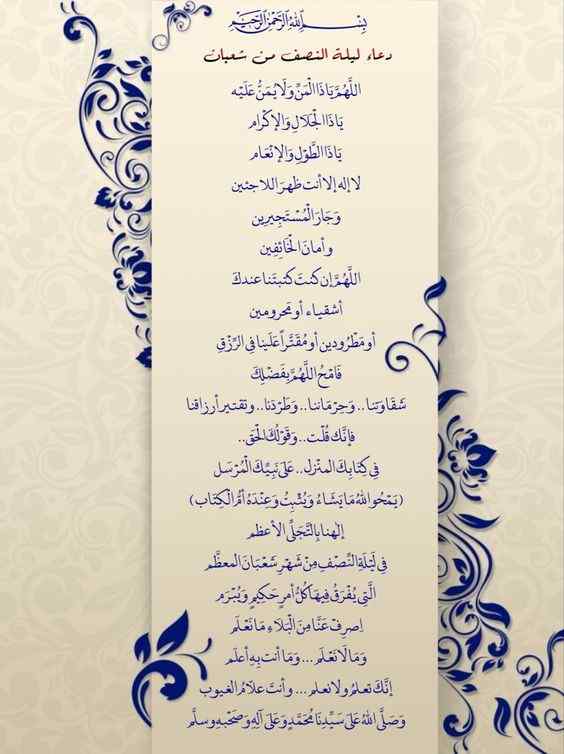 بِسْمِ اللهِ الرَّحْمٰنِ الرَّحِيْمِ
دعاء ليلة النصف من شعبان
اللَّهُمَّ يَاذَا الْمَنِّ وَلَا يُمَنُّ عَلَيْه
يَاذَا الْجَلَالِ وَالإِكْرَام
يَاذَا الطَّوْلِ وَالإِنْعَام
لا إله إلا أنت ظهرَ اللاجئين
وَجَارَ الْمُسْتَجِيرِين
وأمانَ الْخَائِفِين
اللَّهُمَّ إن كنتَ كتبتَنا عندكَ
أشقياء أو محرومين
أو مَطْرُودين أو مُقَتَّراً عَلَينا في الرِّزْقِ
فَامْحُ اللَّهُمَّ بِفَضْلِكَ
شَقَاوَتِنا.. وَحِرْمَاننا.. وَطَرْدَنا.. وتقتير أرزاقنا
فَإِنَّكَ قُلْت.. وَقَوْلُكَ الْحَق..
فِي كِتَابِكَ المنْزل.. عَلَى نَبِيِّكَ الْمُرْسَل
(يَمْحُو اللهُ مَا يَشَاءُ وَيُثْبِتُ وَعِنْدَهُ أمُّ الْكِتَاب)
إلهنا بِالتَّجَلِّي الأعظم
فِي لَيْلَةِ النِّصْفِ مِنْ شَهْرِ شَعْبَانَ المعظَّم
الَّتِي يُفْرَقُ فِيهَا كُلُّ أمرٍ حَكِيمٍ وَيُبْرَم
اِصرِفْ عَنَّا مِنَ الْبَلَاءِ مَا نَعْلَم
وَمَا لَا نَعْلَم... وَمَا أنت بِهِ أعلَم
إنَّكَ تعلمُ ولا نعلم... وأنتَ علاَّمُ الغيوب
وَصَلَّى اللهُ عَلَى سَيِّدِنَا مُحَمَّدٍ وَعَلَى آلِهِ وَصَحْبِهِ وسلَّم